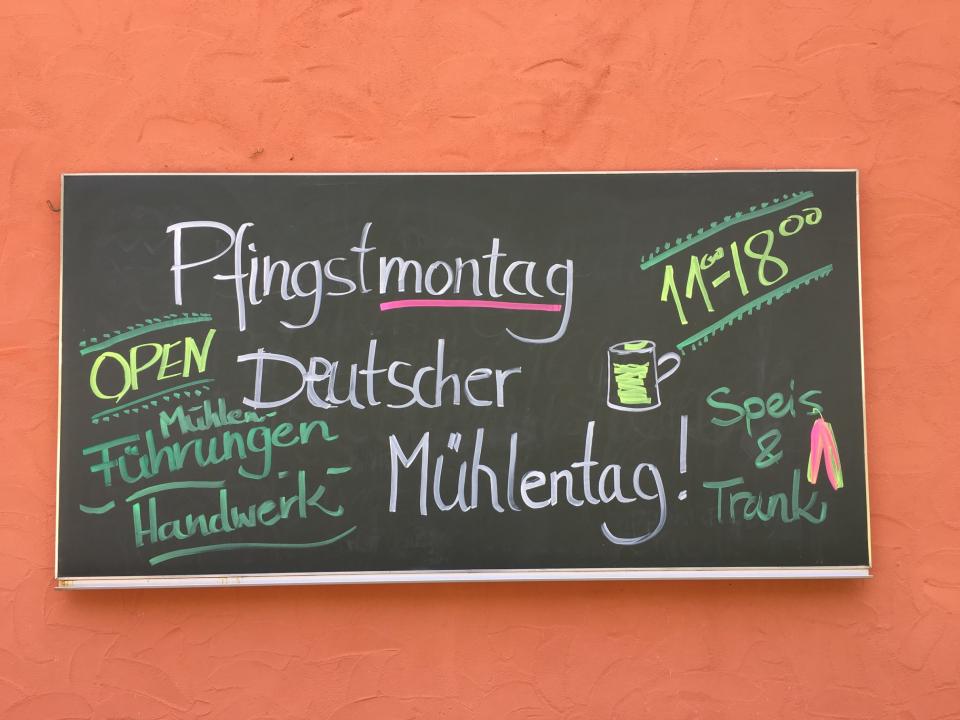 Pfingstmontag
11⁰⁰-18⁰⁰
OPEN
Deutscher
Mühlentag!
Mühlen-
Führungen
- Handwerk -
Speis
&
Trank